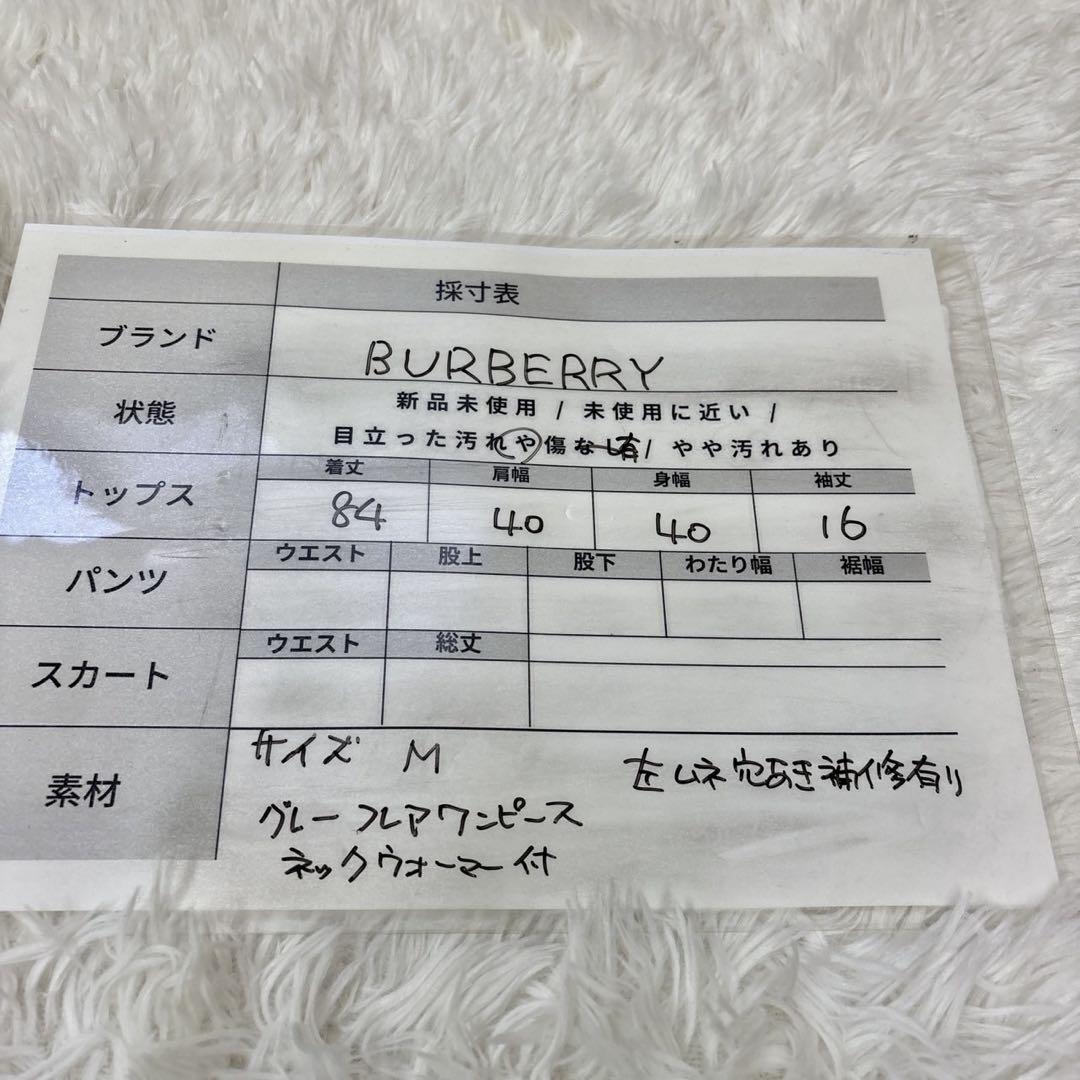 採寸表
ブランド BURBERRY
状態 新品未使用 / 未使用に近い /
目立った汚れや傷なし有/ やや汚れあり
トップス 着丈 肩幅 身幅 袖丈
84 40 40 16
パンツ ウエスト 股上 股下 わたり幅 裾幅
スカート ウエスト 総丈
素材 サイズ M 左ムネ穴あき補修有り
グレーフレアワンピース
ネックウォーマー付